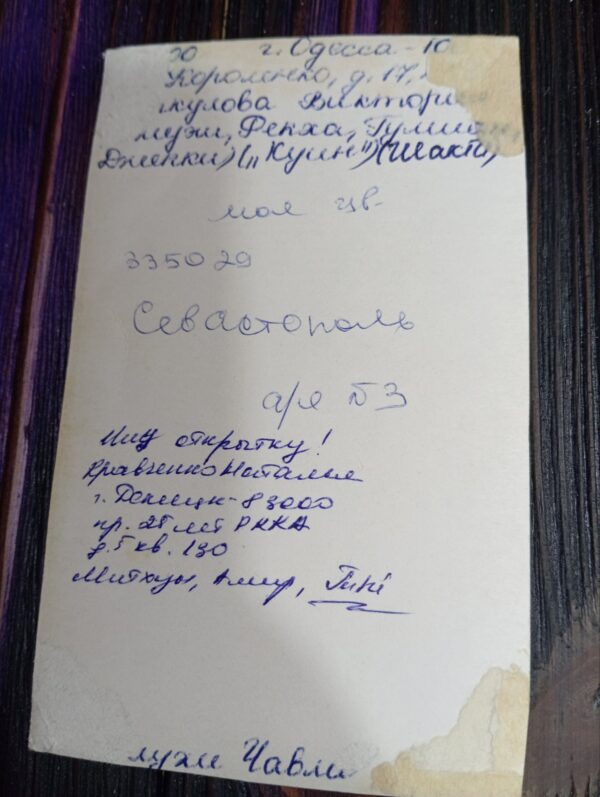 г. Одесса - 10
Короленко, д. 17,
кулова Виктори
Рекха,
Дженки) („Куин") (Шакти)
моя цв.
335029
Севастополь
а/я №3
Ищу открытку!
Кравченко Наталья
г. Донецк-83000
пр. 25 лет РККА
д.5 кв. 130
Митхун, Амир, Тіні
Чавли